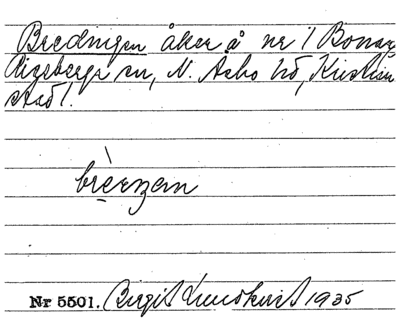 Bredningen åker å nr 1 Bonarp
Riseberga sn, N. Åsbo hd, Kristian
stad l.
brèenzen
Nr 5501. Birgit Lundkvist 1935